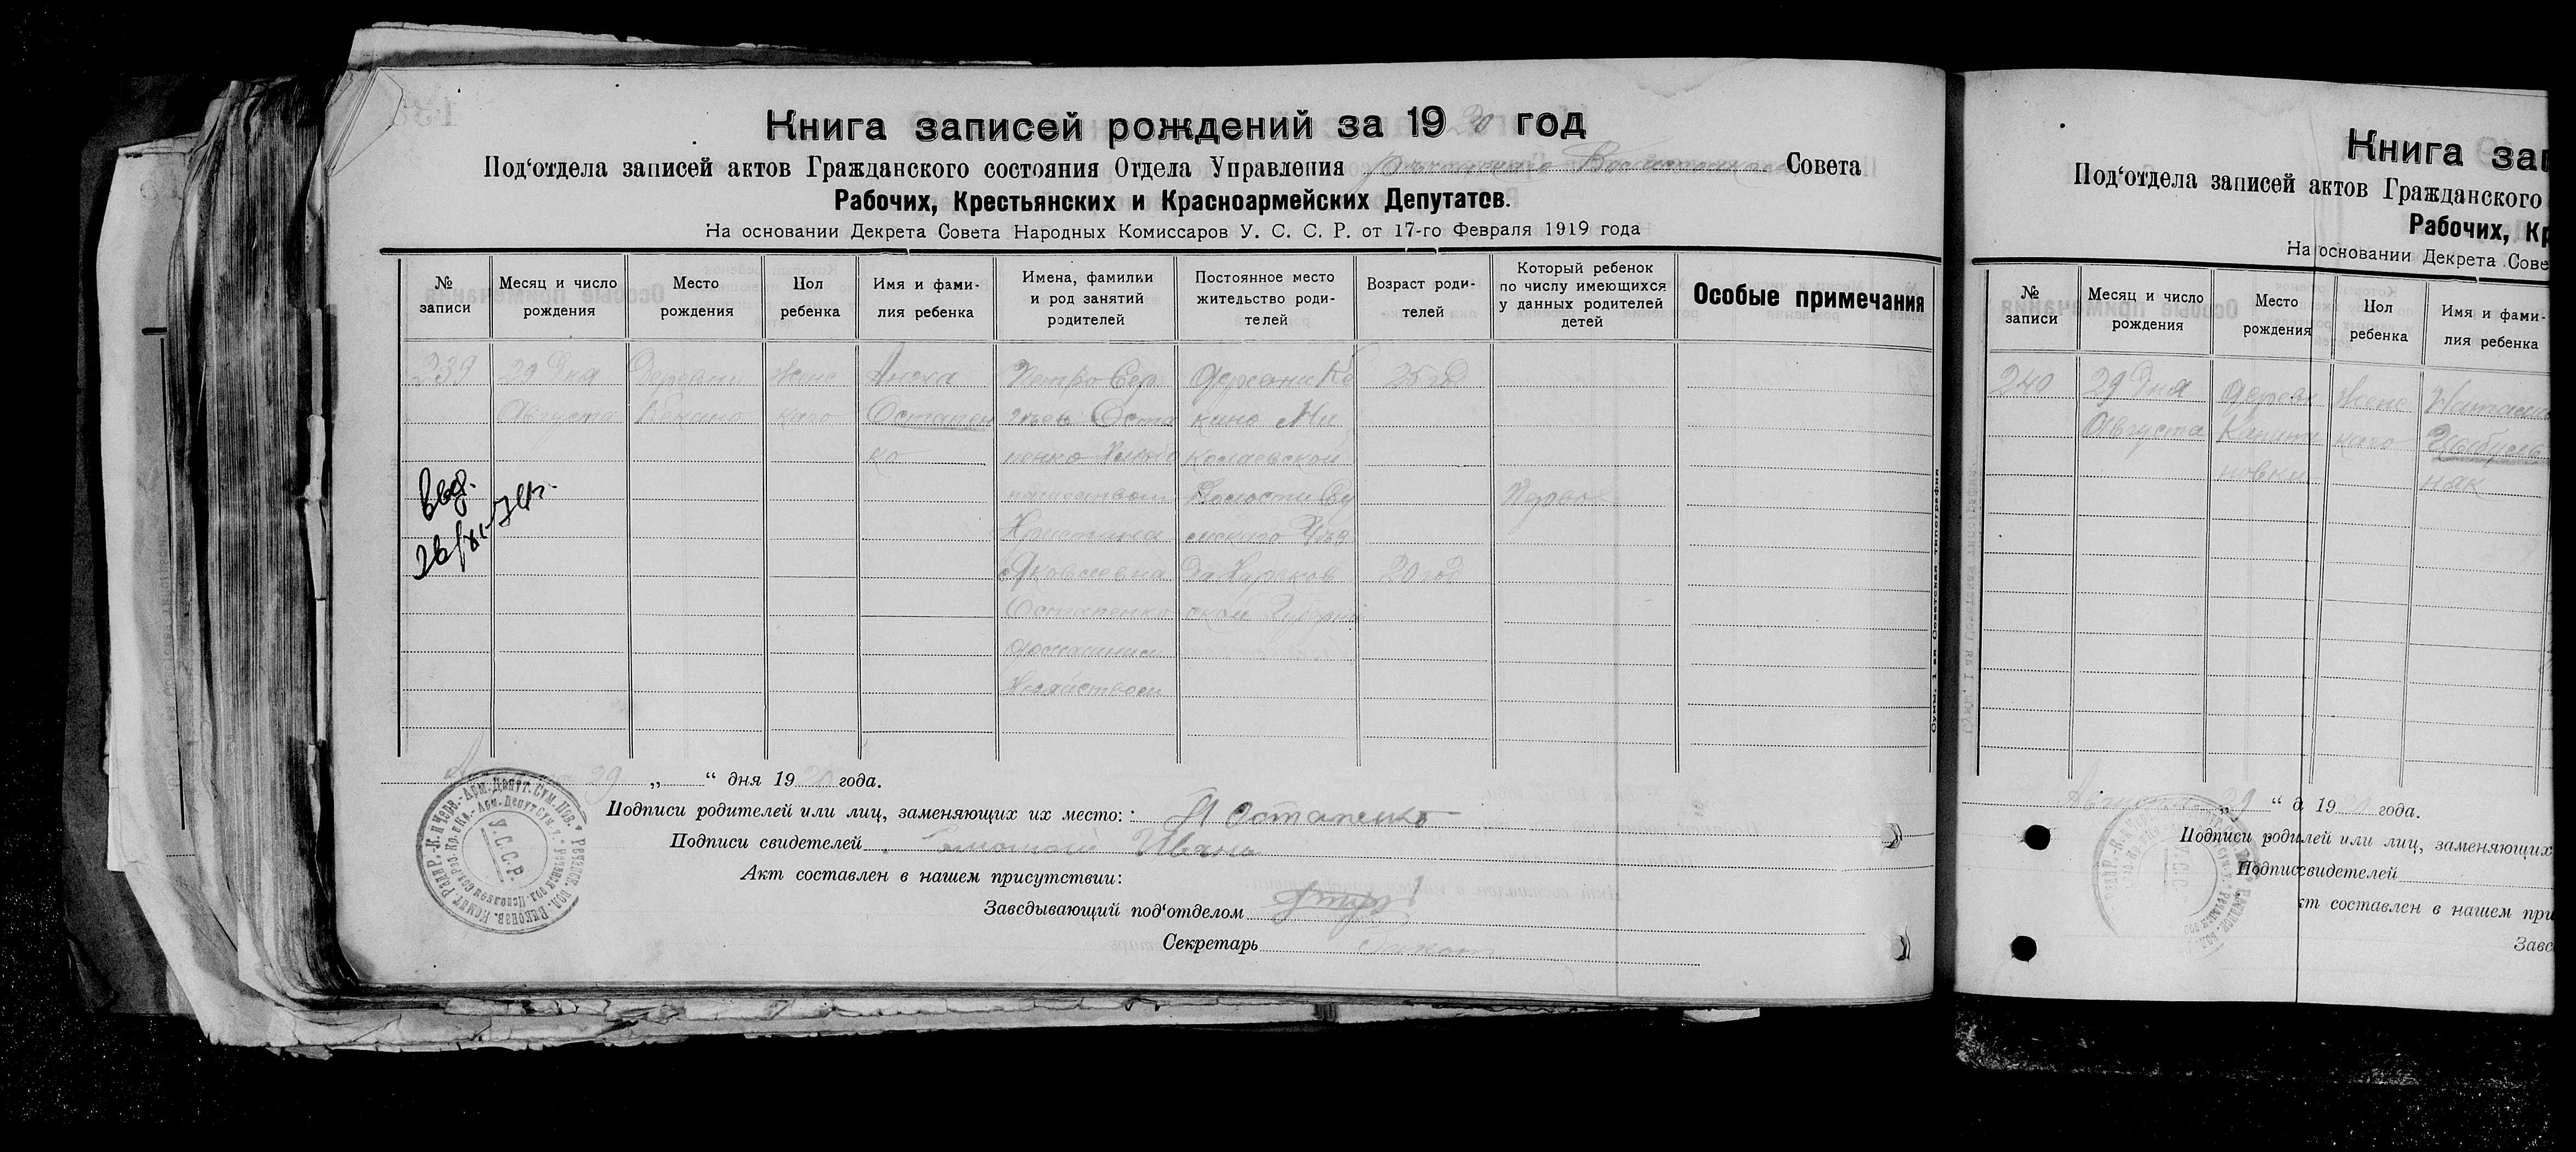 Книга записей рождений за 1920 год
Под‘отдела записей актов Гражданского состояния Отдела Управления Совета
Рабочих, Крестьянских и Красноармейских Депутатов.
На основании Декрета Совета Народных Комиссаров У. С. С. Р. от 17-го Февраля 1919 года
№ записи
Месяц и число рождения
Место рождения
Пол ребенка
Имя и фами-лия ребенка
Имена, фамилии и род занятий родителей
Постоянное место жительство роди-телей
Возраст роди-телей
Который ребенок по числу имеющихся у данных родителей детей
Особые примечания
239
29 Дня
Августа
Деревни
Бекино
Женс
каго
Анна
Остапен
ко
Петро Сер
Оста
пенко Хлебо
пашеством
Христина
Яковлевна
Остапенко
домашним
Хозяйством
Деревни Бе
кино Ни
колаевской
Волости Су
мскаго Уез
да Харьков
ской Губерни
25 год
20 год
Перво
29 „ “ дня 1920 года.
Подписи родителей или лиц, заменяющих их место: П Остапенко
Подписи свидетелей Иванъ
Акт составлен в нашем присутствии:
Заведывающий под‘отделом
Секретарь
У.С.С.Р.
Сумы. 1-ая Советская типография
Книга зап
Под‘отдела записей актов Гражданского
Рабочих, Кр
На основании Декрета Сове
№ записи
Месяц и число рождения
Место рождения
Пол ребенка
Имя и фами-лия ребенка
240
29 Дня
Августа
Деревн
Капит
новки
Женс
каго
Цыбуль
няк
Августа 29 “ д 1920 года.
Подписи родилей или лиц, заменяющих
Подписсвидетелей
кт составлен в нашем при
Завс